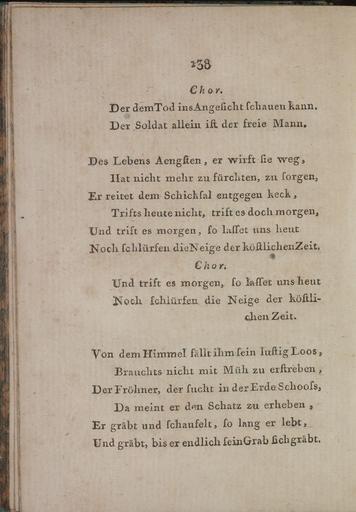 238
Chor.
Der dem Tod ins Angesicht schauen kann.
Der Soldat allein ist der freie Mann.
Des Lebens Aengsten, er wirft sie weg,
Hat nicht mehr zu fürchten, zu sorgen,
Er reitet dem Schicksal entgegen keck,
Trifts heute nicht, trift es doch morgen,
Und trift es morgen, so lasset uns heut
Noch schlürfen die Neige der köstlichen Zeit.
Chor.
Und trift es morgen, so lasset uns heut
Noch schlürfen die Neige der köstli-
chen Zeit.
Von dem Himmel fällt ihm sein lustig Loos,
Brauchts nicht mit Müh zu erstreben,
Der Fröhner, der sucht in der Erde Schooss,
Da meint er den Schatz zu erheben,
Er gräbt und schaufelt, so lang er lebt,
Und gräbt, bis er endlich sein Grab sich gräbt.